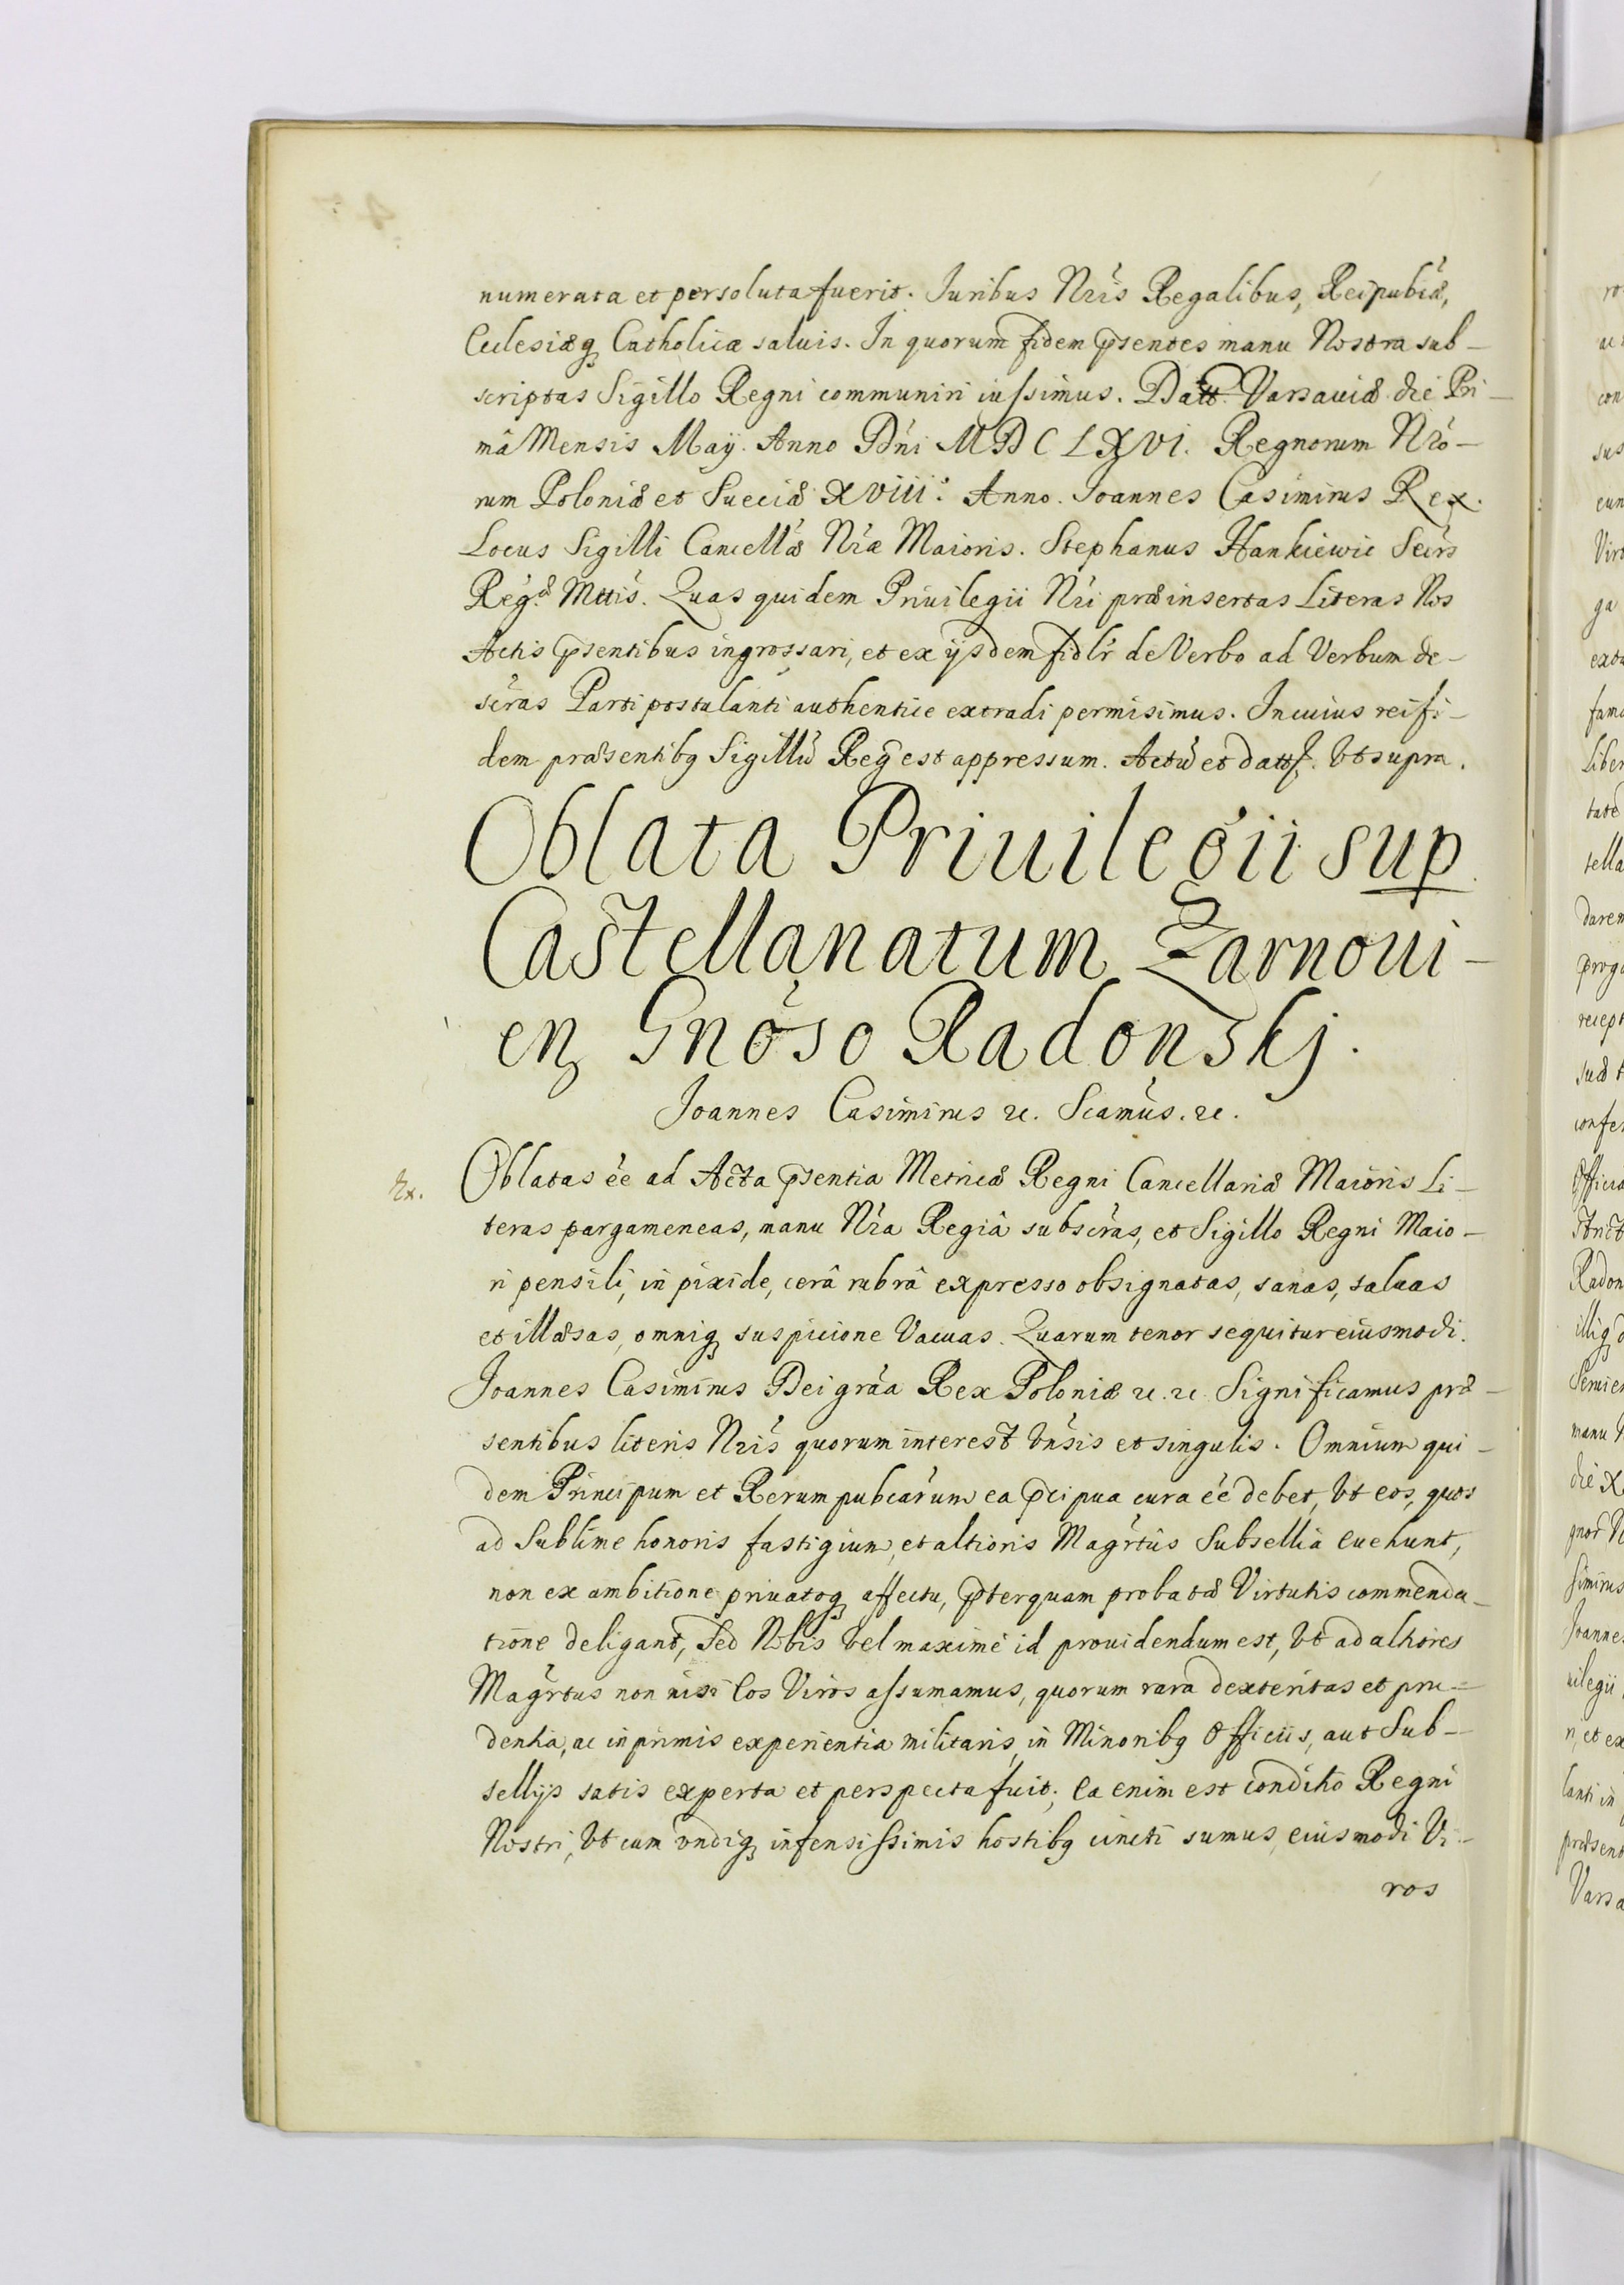 numerata et persoluta fuerit. Iuribus Nris Regalibus, Reipublæ,
Ecclesiæq Catholicæ saluis. In quorum fidem pñsentes manu Nostra sub-
scriptas Sigillo Regni communiri iussimus. Datt. Varsauiæ die Pri-
mâ Mensis Maÿ. Anno Dńi MDCLXVI. Regnorum Nró-
rum Poloniæ et Sueciæ XVIII. Anno. Joannes Casimirus Rex.
Locus Sigilli Cancellæ Nræ Maioris. Stephanus Hankiewic Secrs
Regæ Mttis. Quas quidem Priuilegii Nri præinsertas Literas Nos
Actis pñsentibus ingrossari, et ex ijsdem fidlr de Verbo ad Verbum de-
scras Parti postulanti authentice extradi permisimus. In cuius rei fi-
dem præsentibq Sigillũ Reg est appressum. Actũ et datt. Vt supra.
Oblata Priuilegii sup
Castellanatum Zarnoui-
en Gnoso Radonskj.
Joannes Casimirus rc. Scamus. rc.
Rx.
Oblatas ée ad Acta pñsentia Metricæ Regni Cancellariæ Maioris Li-
teras pargameneas, manu Nra Regiâ subscras, et Sigillo Regni Maio-
ri pensili, in pixide, cerâ rubrâ expresso obsignatas, sanas, saluas
et illæsas, omniq suspicione Vacuas. Quarum tenor sequitur eiusmodi.
Joannes Casimirus Dei gráa Rex Poloniæ rc. rc. Significamus præ-
sentibus literis Nris quorum interest Vnsis et singulis. Omnium qui-
dem Principum et Rerum pubcarum ea pcipua cura ée debet, Vt eos, quos
ad Sublime honoris fastigium, et altioris Magrtus Subsellia euehunt,
non ex ambitione priuatoq affectu, pterquam probatæ Virtutis commenda-
tione deligant, Sed Nobis Vel maximè id prouidendum est, Vt ad altiores
Magrtus non nisi Eos Viros assumamus, quorum rara dexteritas et pru-
dentia, ac inprimis experientia militaris, in Minoribq Officiis, aut Sub-
sellijs satis experta et perspecta fuit; Ea enim est conditio Regni
Nostri, Vt cum vndiq infensissimis hostibq cincti sumus, eiusmodi Vi-
ros